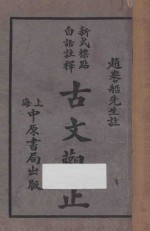 趙𠔉船先生註
新式標點
白話註釋
古文觀止
上海
中原書局出版